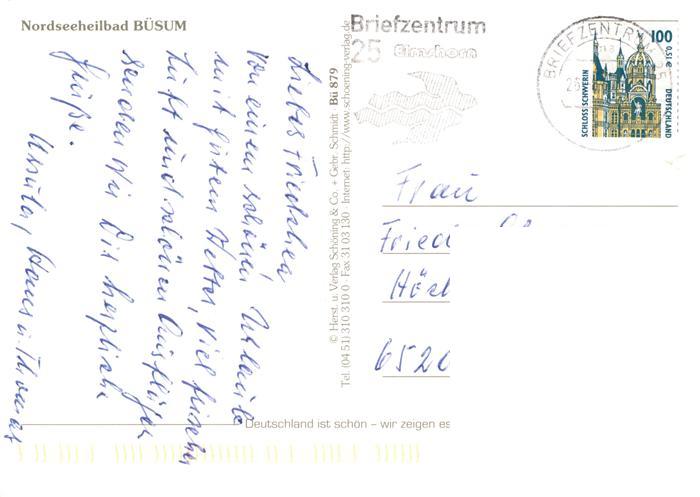 Nordseeheilbad BÜSUM
Liebes Friedchen
Von einem schönen Urlaub
mit gutem Wetter, viel frischer
Luft und schönen Ausflügen
senden wir Dir herzliche
Grüße.
Ursula, Hans u. Thomas
© Herst. u. Verlag Schöning & Co. + Gebr. Schmidt Bü 879
Tel. (04 51) 310 310 0 · Fax 31 03 130 · Internet: http://www.schoening-verlag.de
Briefzentrum
25 Elmshorn
BRIEFZENTRUM 25
100
0,51 €
DEUTSCHLAND
SCHLOSS SCHWERIN
Frau
Fried
6520
Deutschland ist schön – wir zeigen es